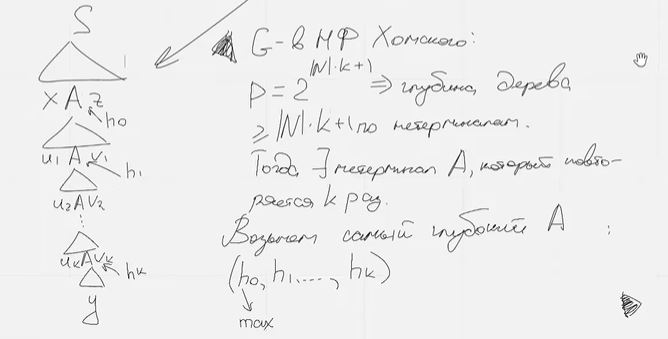 S
x A z
h₀
u₁ A v₁
h₁
u₂ A v₂
⋮
uₖ A vₖ
hₖ
y
▲ G - в НФ Хомского:
p = 2^{|N|·k+1} ⇒ глубина дерева
≥ |N|·k+1 по нетерминалам.
Тогда ∃ нетерминал A, который повто-
ряется k раз.
Возьмем самый глубокий A :
(h₀, h₁, ...., hₖ)
↓
max